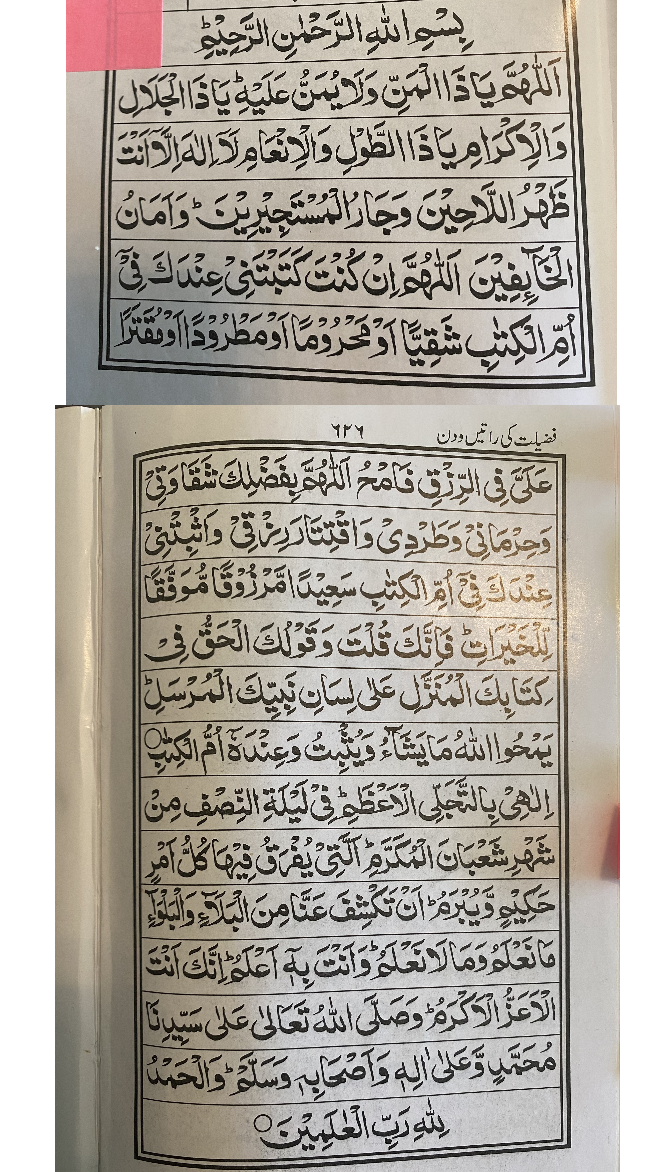 بِسْمِ اللهِ الرَّحْمٰنِ الرَّحِيْمِ ؕ
اَللّٰهُمَّ يَا ذَا الْمَنِّ وَلَا يُمَنُّ عَلَيْهِ ؕ يَا ذَا الْجَلَالِ
وَالْاِكْرَامِ يَا ذَا الطَّوْلِ وَالْاِنْعَامِ لَاۤ اِلٰهَ اِلَّاۤ اَنْتَ
ظَهْرُ اللَّاجِيْنَ وَجَارُ الْمُسْتَجِيْرِيْنَ ؕ وَاَمَانُ
الْخَآئِفِيْنَ اَللّٰهُمَّ اِنْ كُنْتَ كَتَبْتَنِيْ عِنْدَكَ فِيْۤ
اُمِّ الْكِتٰبِ شَقِيًّا اَوْ مَحْرُوْمًا اَوْ مَطْرُوْدًا اَوْ مُقَتَّرًا
فضیلت کی راتیں و دن ۶۲۶
عَلَيَّ فِي الرِّزْقِ فَامْحُ اَللّٰهُمَّ بِفَضْلِكَ شَقَاوَتِيْ
وَحِرْمَانِيْ وَطَرْدِيْ وَاقْتِتَارَ رِزْقِيْ وَاَثْبِتْنِيْ
عِنْدَكَ فِيْۤ اُمِّ الْكِتٰبِ سَعِيْدًا مَّرْزُوْقًا مُّوَفَّقًا
لِّلْخَيْرَاتِ ؕ فَاِنَّكَ قُلْتَ وَقَوْلُكَ الْحَقُّ فِيْ
كِتَابِكَ الْمُنَزَّلِ عَلٰى لِسَانِ نَبِيِّكَ الْمُرْسَلِ ؕ
يَمْحُوا اللهُ مَا يَشَآءُ وَيُثْبِتُ وَعِنْدَهٗۤ اُمُّ الْكِتٰبِ ○
اِلٰهِيْ بِالتَّجَلِّي الْاَعْظَمِ ؕ فِيْ لَيْلَةِ النِّصْفِ مِنْ
شَهْرِ شَعْبَانَ الْمُكَرَّمِ ؕ الَّتِيْ يُفْرَقُ فِيْهَا كُلُّ اَمْرٍ
حَكِيْمٍ وَّيُبْرَمُ ؕ اَنْ تَكْشِفَ عَنَّا مِنَ الْبَلَآءِ وَالْبَلْوَآءِ
مَا نَعْلَمُ وَمَا لَا نَعْلَمُ ؕ وَاَنْتَ بِهٖۤ اَعْلَمُ ؕ اِنَّكَ اَنْتَ
الْاَعَزُّ الْاَكْرَمُ ؕ وَصَلَّى اللهُ تَعَالٰى عَلٰى سَيِّدِنَا
مُحَمَّدٍ وَّعَلٰىۤ اٰلِهٖ وَاَصْحَابِهٖ وَسَلَّمْ ؕ وَالْحَمْدُ
لِلّٰهِ رَبِّ الْعٰلَمِيْنَ ○